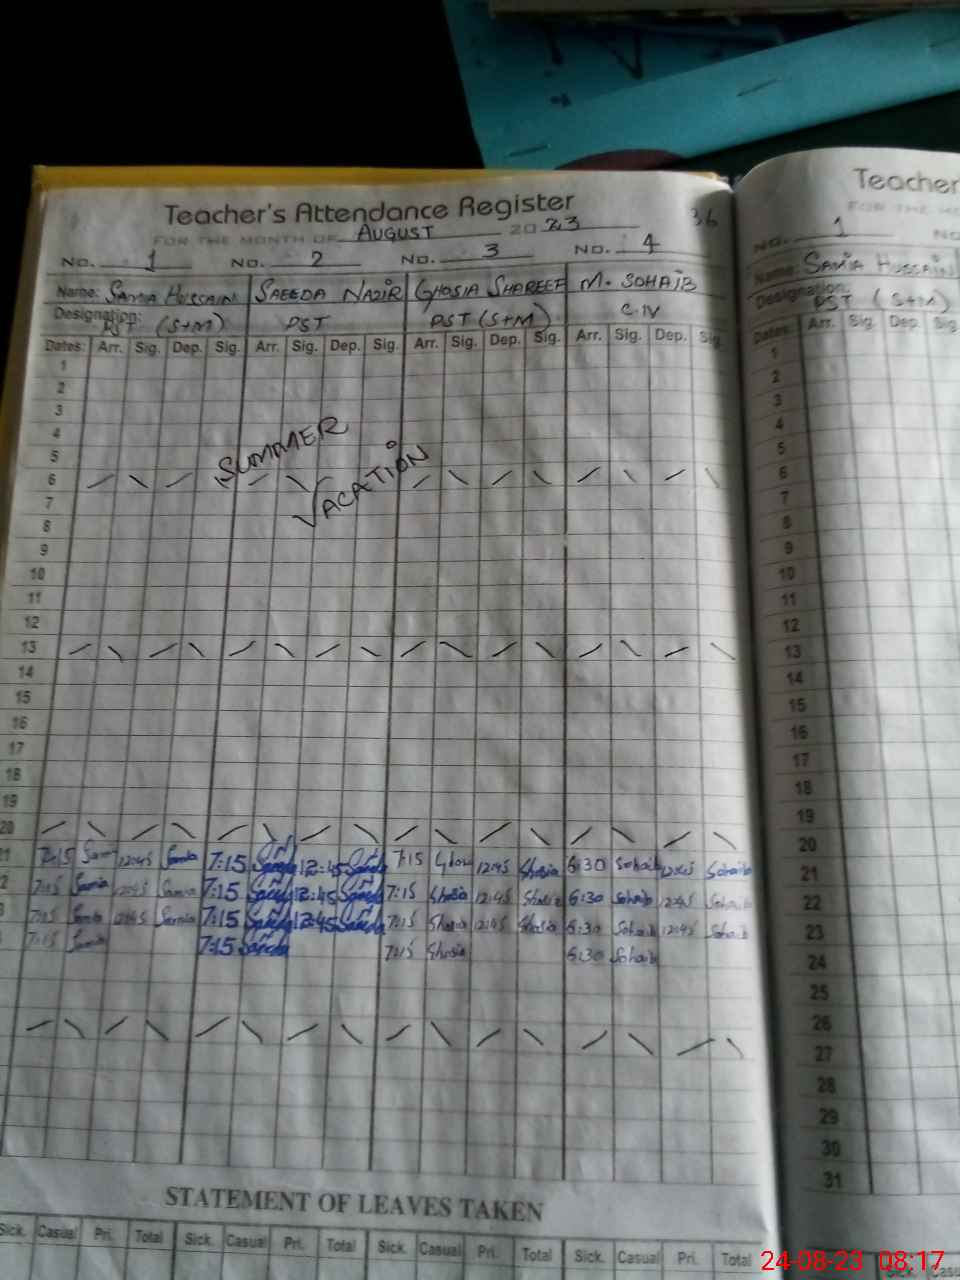 Teacher's Attendance Register
FOR THE MONTH OF AUGUST 2023 36
No. 1 No. 2 No. 3 No. 4
Name: SAMIA HUSSAIN SAEEDA NAZIR GHOSIA SHAREEF M. SOHAIB
Designation: PST (S+M) PST PST (S+M) C-IV
Dates: Arr. Sig. Dep. Sig. Arr. Sig. Dep. Sig. Arr. Sig. Dep. Sig. Arr. Sig. Dep. Sig.
1
2
3
4
5
SUMMER
6
VACATION
7
8
9
10
11
12
13
14
15
16
17
18
19
20
7:15 12:45 Samia 7:15 12:45 7:15 12:45 Ghosia 6:30 Sohaib 12:45 Sohaib
7:15 Samia 12:45 Samia 7:15 12:45 7:15 Ghosia 12:45 Ghosia 6:30 Sohaib 12:45 Sohaib
7:15 Samia 12:45 Samia 7:15 12:45 7:15 Ghosia 12:45 Ghosia 6:30 Sohaib 12:45 Sohaib
7:15 Samia 7:15 7:15 Ghosia 6:30 Sohaib
STATEMENT OF LEAVES TAKEN
Sick. Casual Pri. Total Sick. Casual Pri. Total Sick. Casual Pri. Total Sick. Casual Pri. Total
Teacher
FOR THE
No. 1
Name: SAMIA HUSSAIN
Designation: PST (S+M)
Dates: Arr. Sig. Dep. Sig.
1
2
3
4
5
6
7
8
9
10
11
12
13
14
15
16
17
18
19
20
21
22
23
24
25
26
27
28
29
30
31
24-08-23 08:17